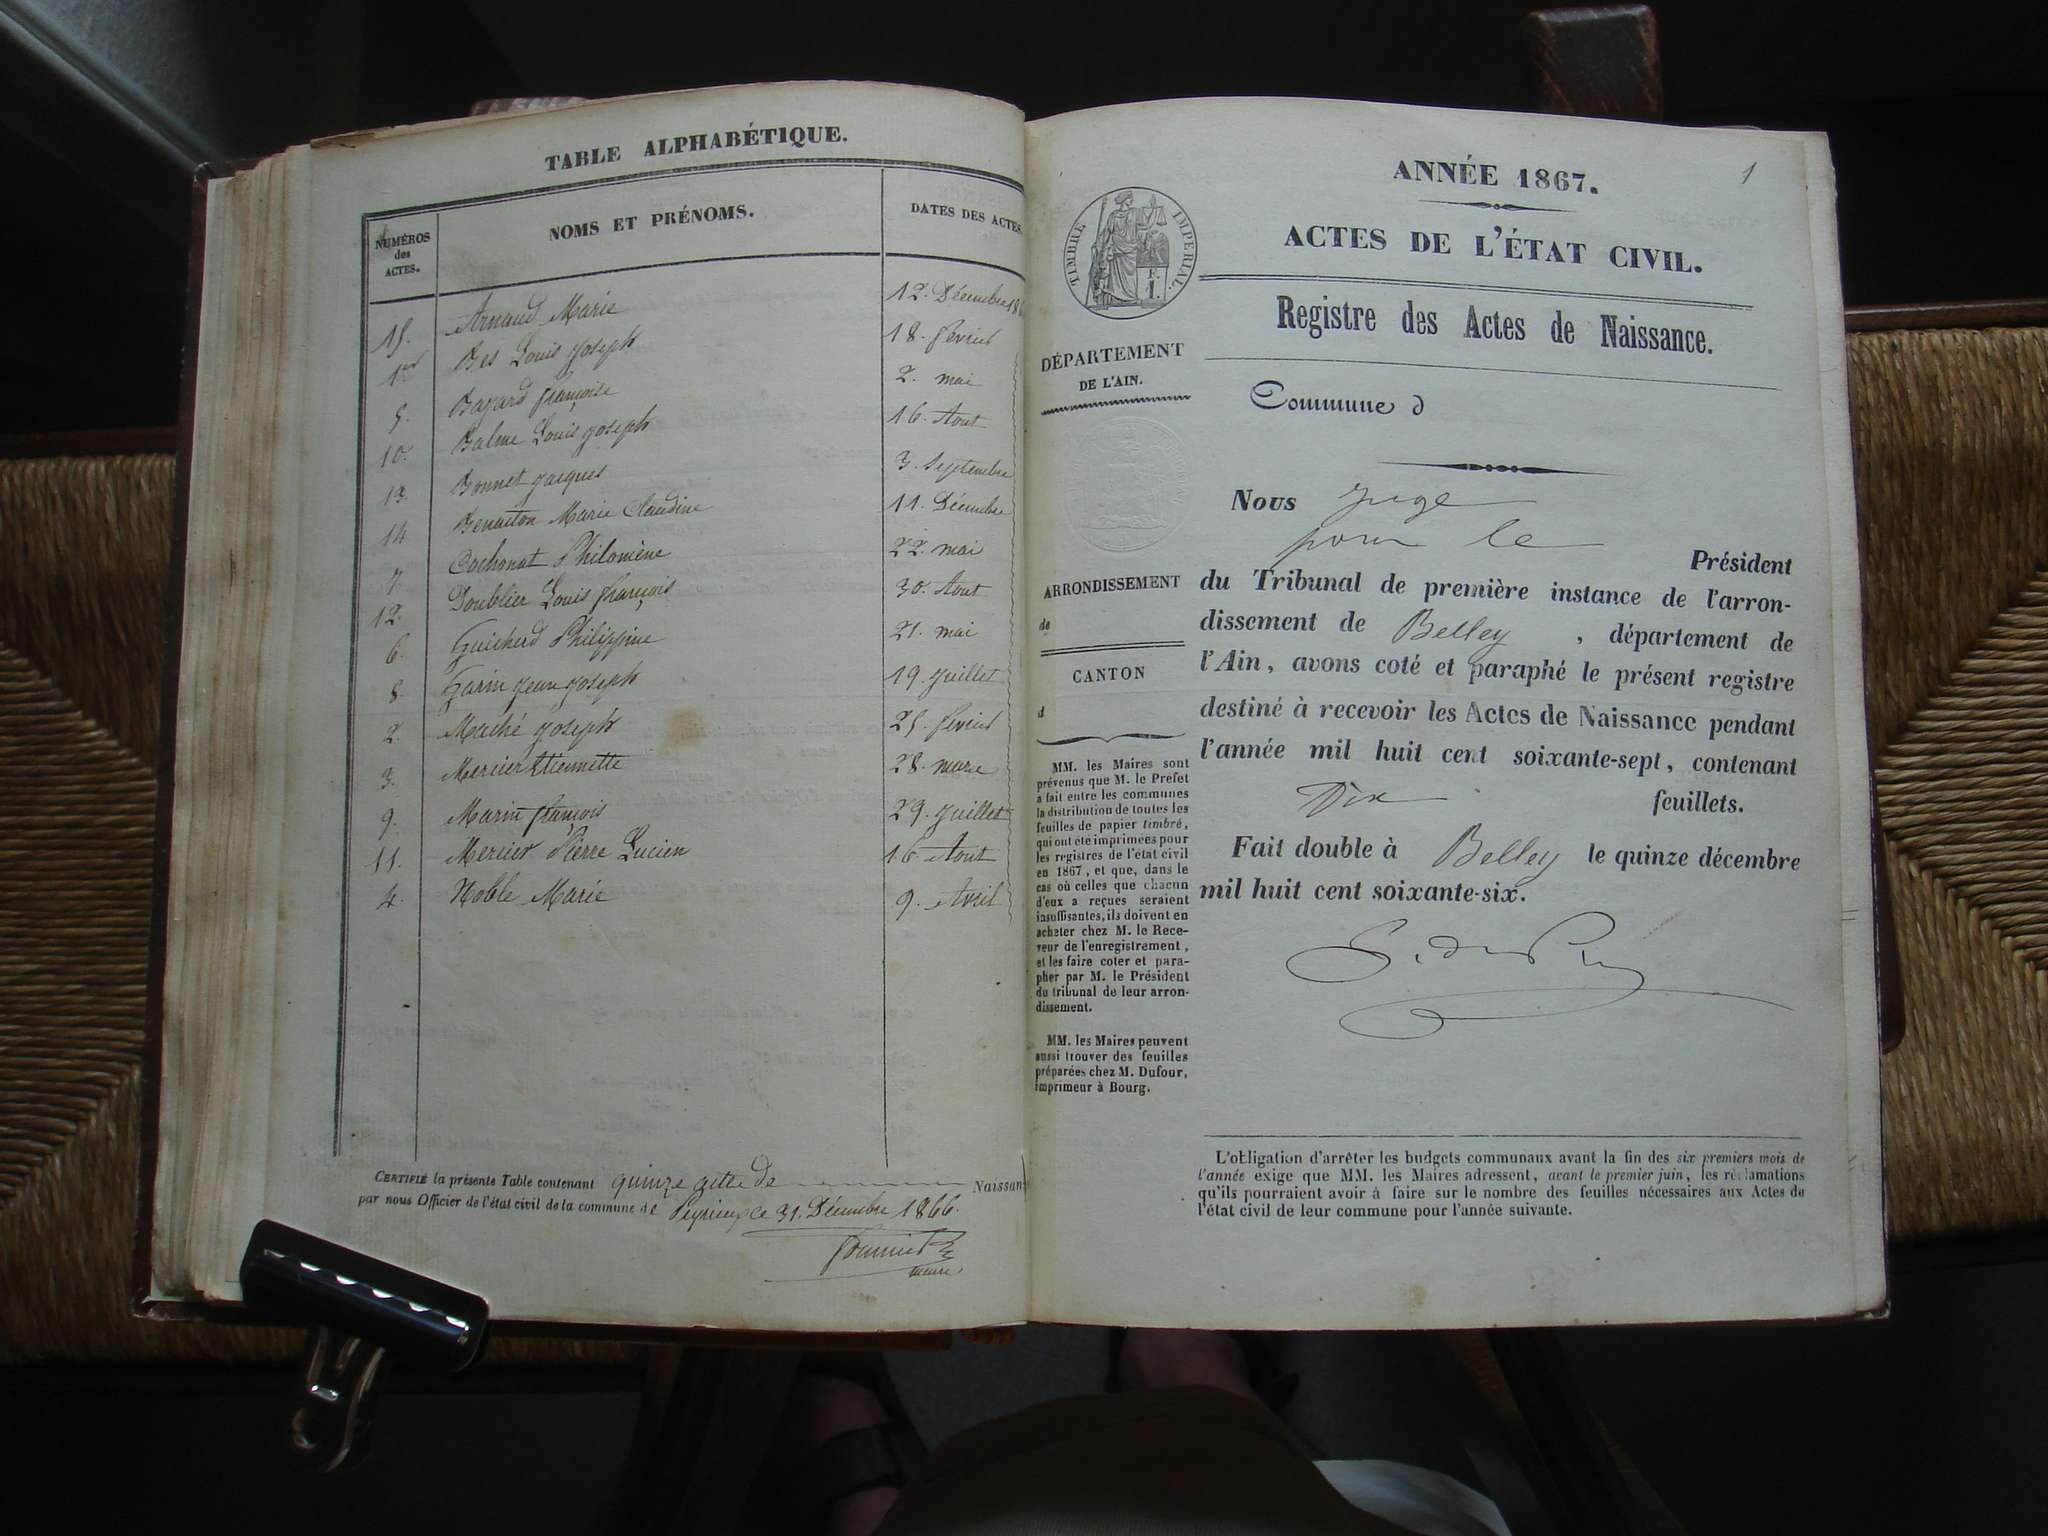 TABLE ALPHABÉTIQUE.
NUMÉROS
des
ACTES.
NOMS ET PRÉNOMS.
DATES DES ACTES.
15. Arnaud Marie 12. Décembre
1er Bes Louis Joseph 18. février
5. Bayard françoise 2. mai
10. Balme Louis Joseph 16. Aout
13. Bonnet Jacques 3. Septembre
14 Benaiton Marie Claudine 11. Décembre
7 Cochonat Philomène 22. mai
12. Doublier Louis françois 30. Aout
6. Guicherd Philippine 21. mai
8. Garin Jean Joseph 19. Juillet
2. Maché Joseph 25. fevrier
3. Mercier Etiennette 28. mars
9. Marin françois 29. Juillet
11. Mercier Pierre Lucien 16. Aout
4. Noble Marie 9. Avril
CERTIFIÉ la présente Table contenant quinze actes de Naissan
par nous Officier de l'état civil de la commune de Peyrieu ce 31. Décembre 1866.
maire
1
ANNÉE 1867.
ACTES DE L'ÉTAT CIVIL.
TIMBRE IMPERIAL.
Registre des Actes de Naissance.
DÉPARTEMENT
DE L'AIN.
Commune d
ARRONDISSEMENT
de
CANTON
d
MM. les Maires sont
prévenus que M. le Préfet
a fait entre les communes
la distribution de toutes les
feuilles de papier timbré,
qui ont été imprimées pour
les registres de l'état civil
en 1867, et que, dans le
cas où celles que chacun
d'eux a reçues seraient
insuffisantes, ils doivent en
acheter chez M. le Rece-
veur de l'enregistrement,
et les faire coter et para-
pher par M. le Président
du tribunal de leur arron-
dissement.
MM. les Maires peuvent
aussi trouver des feuilles
préparées chez M. Dufour,
imprimeur à Bourg.
Nous Juge
pour le
Président
du Tribunal de première instance de l'arron-
dissement de Belley, département de
l'Ain, avons coté et paraphé le présent registre
destiné à recevoir les Actes de Naissance pendant
l'année mil huit cent soixante-sept, contenant
Dix feuillets.
Fait double à Belley le quinze décembre
mil huit cent soixante-six.
L'obligation d'arrêter les budgets communaux avant la fin des six premiers mois de
l'année exige que MM. les Maires adressent, avant le premier juin, les réclamations
qu'ils pourraient avoir à faire sur le nombre des feuilles nécessaires aux Actes de
l'état civil de leur commune pour l'année suivante.